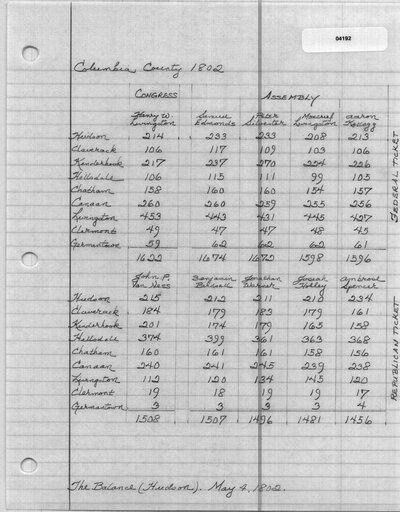 04192
Columbia County 1802
CONGRESS ASSEMBLY
Henry W. Samuel Peter Maturin Aaron
Livingston Edmonds Silvester Livingston Kellogg
Hudson 214 233 233 208 213
Claverack 106 117 109 103 106
Kinderhook 217 237 270 224 226
Hillsdale 106 115 111 99 105
Chatham 158 160 160 154 157
Canaan 260 260 259 255 256
Livingston 453 443 431 445 427
Clermont 49 47 47 48 45
Germantown 59 62 62 62 61
1622 1674 1672 1598 1596
FEDERAL TICKET
John P. Benjamin Jonathan Josiah Ambrose
Van Ness Birdsall Warner Spencer
Hudson 215 212 211 210 234
Claverack 184 179 183 179 161
Kinderhook 201 174 179 165 158
Hillsdale 374 399 361 363 368
Chatham 160 161 161 158 156
Canaan 240 241 245 239 238
Livingston 112 120 134 145 120
Clermont 19 18 19 19 17
Germantown 3 3 3 3 4
1508 1507 1496 1481 1456
REPUBLICAN TICKET
The Balance (Hudson). May 4, 1802.